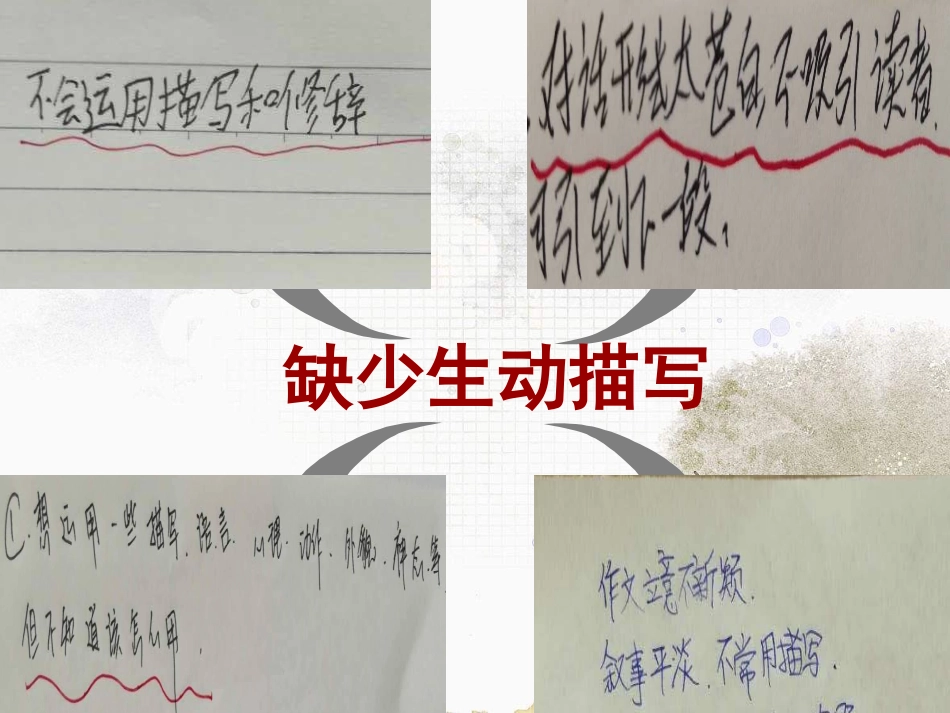 不会运用描写和修辞
对话形式太苍白不吸引读者.
引到下一段,
缺少生动描写
①.想运用一些描写.语言.心理.动作.外貌.神态.等
但不知道该怎么用.
作文立意不新颖.
叙事平淡.不常用描写.